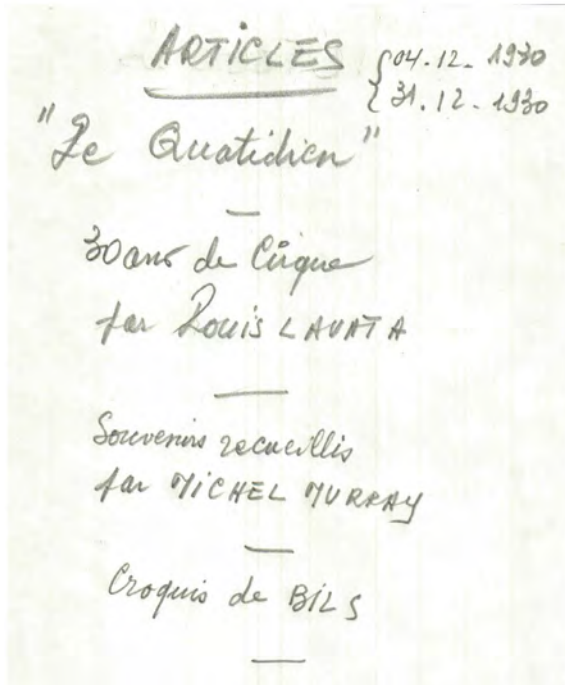 ARTICLES { 04.12. 1930
{ 31.12. 1930
"Le Quotidien"
30 ans de Cirque
par Louis LAVATA
Souvenirs recueillis
par MICHEL MURRAY
Croquis de BILS